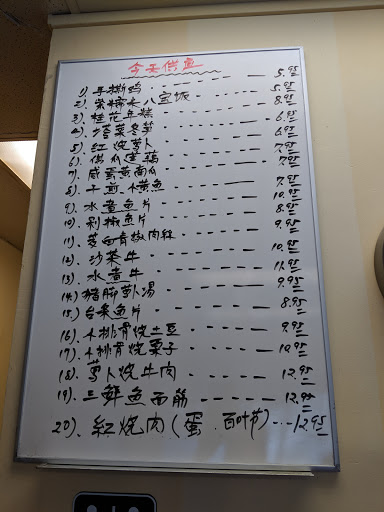 今天供应
1) 手撕鸡 - - - - - 5.95
2) 紫糯米八宝饭 - - - - 5.95
3) 桂花年糕 - - - - - 8.95
4) 塔菜冬笋 - - - - - 6.95
5) 红烧萝卜 - - - - - 6.95
6) - - - - - 7.95
7) 咸蛋黄南瓜 - - - - 7.95
8) 干煎小黄鱼 - - - - 7.95
9) 水煮鱼片 - - - - - 10.95
10) 剁椒鱼片 - - - - - 8.95
11) 茭白青椒肉丝 - - - - 9.95
12) 沙茶牛 - - - - - 10.95
13) 水煮牛 - - - - - 11.95
14) 猪脚萝卜汤 - - - - 9.95
15) 鱼片 - - - - - 8.95
16) 小排骨烧土豆 - - - - 9.95
17) 小排骨烧栗子 - - - - 10.95
18) 萝卜烧牛肉 - - - - 12.95
19) 三鲜鱼面筋 - - - - 12.95
20). 紅烧肉(蛋.百叶节) - - - 12.95